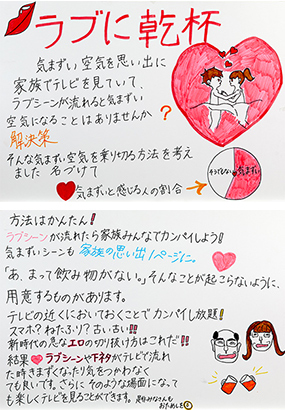 ラブに乾杯
気まずい空気を思い出に
家族でテレビを見ていて、
ラブシーンが流れると気まずい
空気になることはありませんか?
解決策
そんな気まずい空気を乗り切る方法を考え
ました 名づけて
気まずいと感じる人の割合→
そうでもない
気まずい
方法はかんたん!
ラブシーンが流れたら家族みんなでカンパイしよう!
気まずいシーンも家族の思い出1ページに。
「あ、まって飲み物がない。」そんなことが起こらないように、
用意するものがあります。
テレビの近くにおいておくことでカンパイし放題!
スマホ?ねたふり?古い古い!!!
新時代の急なエロの切り抜け方はこれだ!!
結果ラブシーンや下ネタがテレビで流れ
た時きまずくなったり気をつかわなく
ても良いです。さらに、そのような場面になって
も楽しくテレビを見ることができます。
是非みなさんも
おためしを